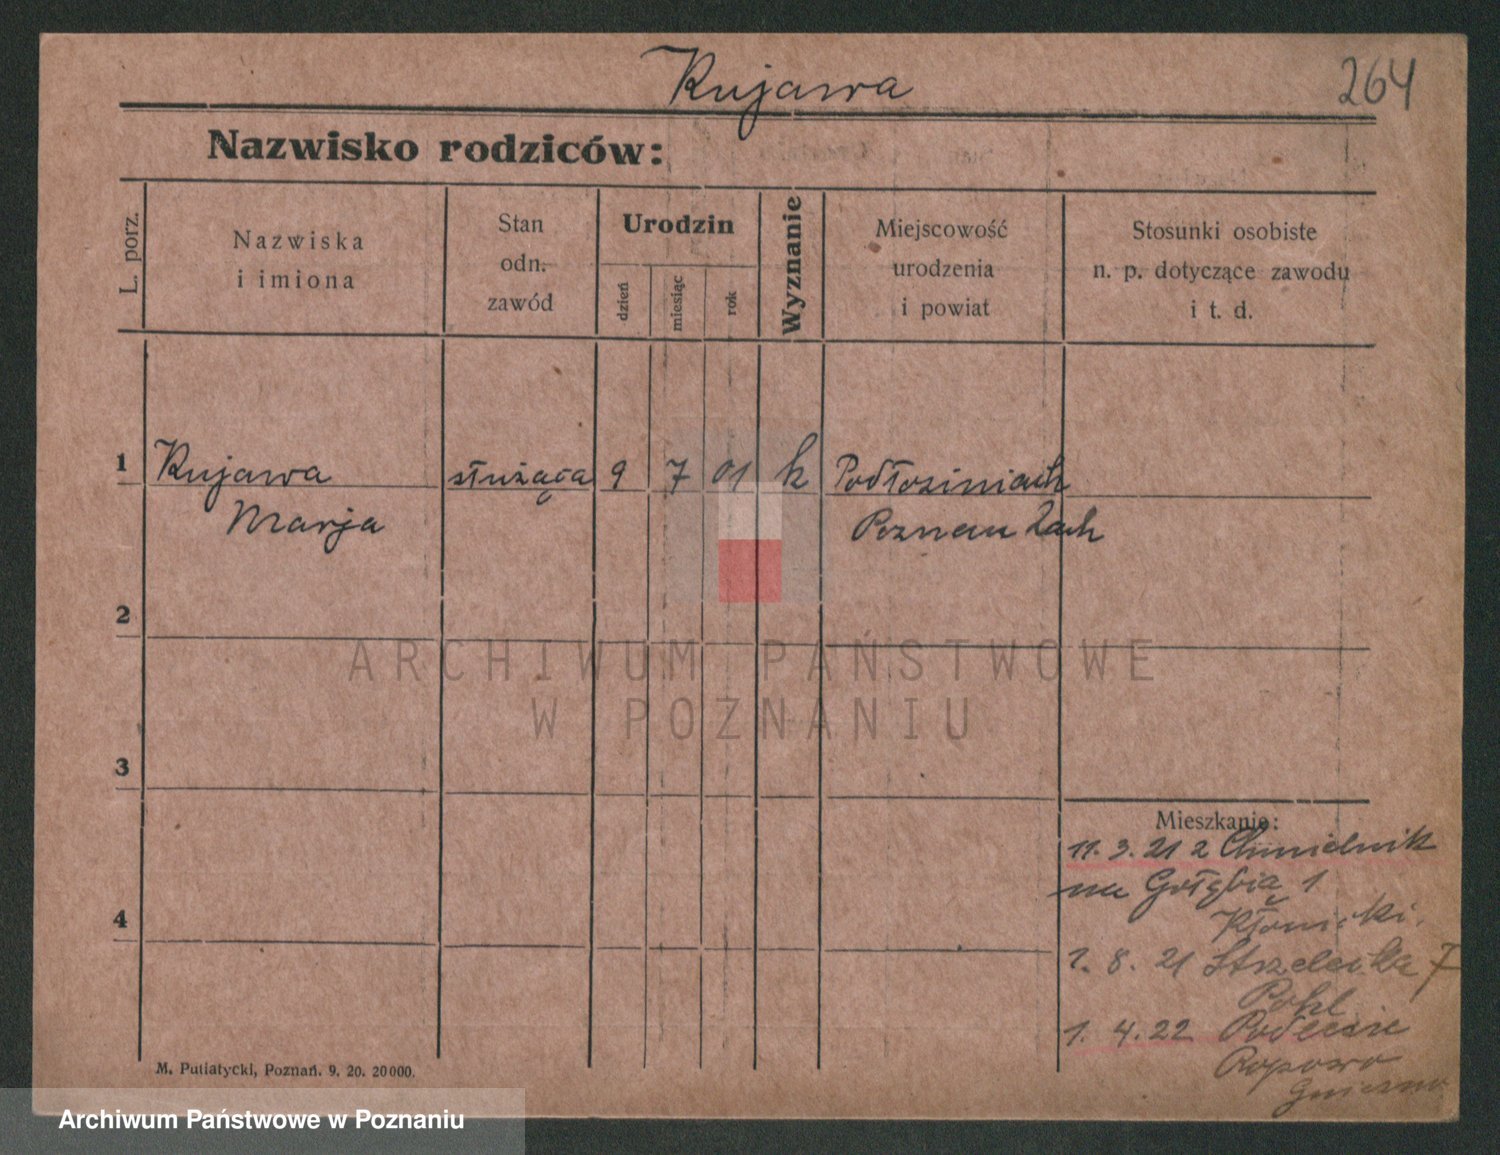 Kujawa
264
Nazwisko rodziców:
L. porz.
Nazwiska
i imiona
Stan
odn.
zawód
Urodzin
dzień
miesiąc
rok
Wyznanie
Miejscowość
urodzenia
i powiat
Stosunki osobiste
n. p. dotyczące zawodu
i t. d.
1 Kujawa służąca 9 7 01 k Podłoziniach
Marja Poznau Zach
2
3
4
ARCHIWUM PAŃSTWOWE
W POZNANIU
Mieszkanie:
11. 3. 21 z Chmielnik
na Gołębią 1
1. 8. 21 Strzelecka 7
Pohl
1. 4. 22
Gniezno
M. Putiatycki, Poznań. 9. 20. 20000.
Archiwum Państwowe w Poznaniu